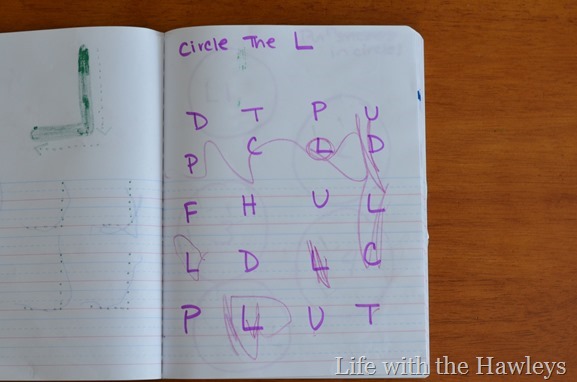 Circle The L
D T P U
P C L D
F H U L
L D L C
P L U T
Life with the Hawleys